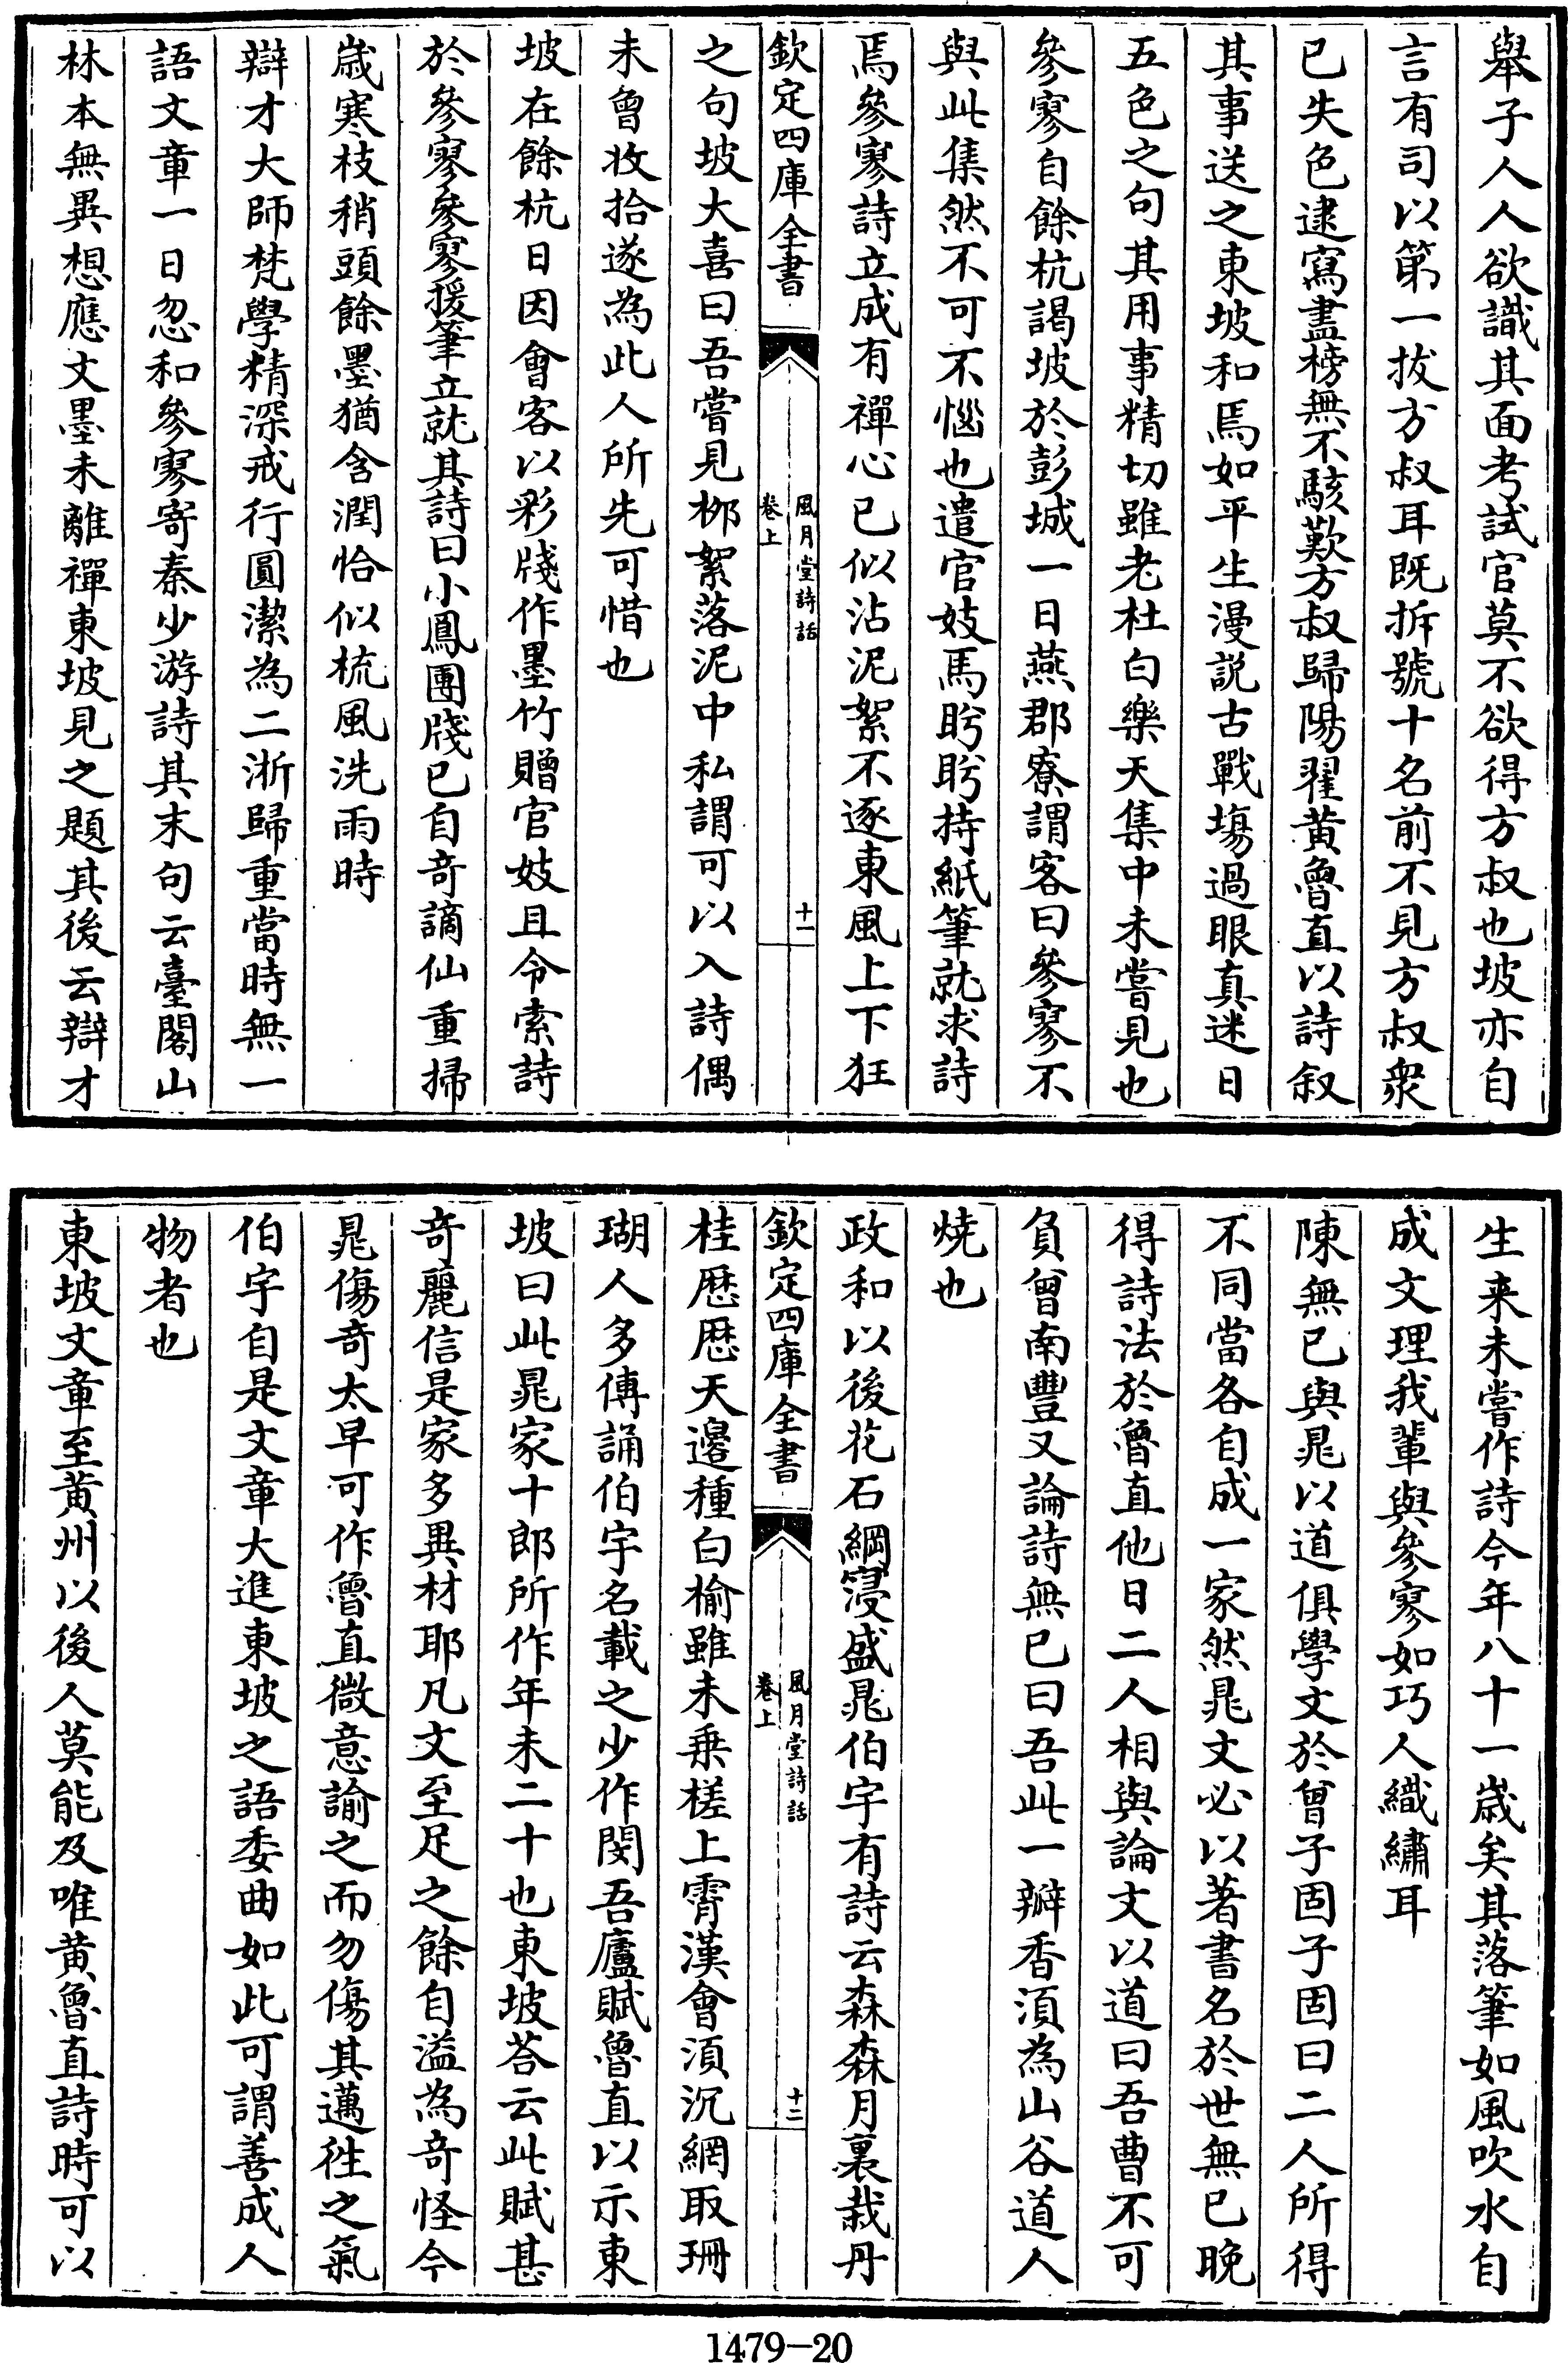 舉子人人欲識其面考試官莫不欲得方叔也坡亦自
言有司以第一拔方叔耳既拆號十名前不見方叔衆
已失色逮寫盡榜無不駭歎方叔歸陽翟黄魯直以詩叙
其事送之東坡和焉如平生漫説古戰塲過眼真迷日
五色之句其用事精切雖老杜白樂天集中未嘗見也
參寥自餘杭謁坡於彭城一日燕郡寮謂客曰參寥不
與此集然不可不惱也遣官妓馬盻盻持紙筆就求詩
焉參寥詩立成有禪心已似沾泥絮不逐東風上下狂
欽定四庫全書
風月堂詩話
卷上
十一
之句坡大喜曰吾嘗見桞絮落泥中私謂可以入詩偶
未曾收拾遂為此人所先可惜也
坡在餘杭日因會客以彩牋作墨竹贈官妓且令索詩
於參寥參寥援筆立就其詩曰小鳳團牋已自竒謫仙重掃
嵗寒枝稍頭餘墨猶含潤恰似梳風洗雨時
辯才大師梵學精深戒行圓潔為二浙歸重當時無一
語文章一日忽和參寥寄秦少游詩其末句云臺閣山
林本無異想應文墨未離禪東坡見之題其後云辯才
生來未嘗作詩今年八十一嵗矣其落筆如風吹水自
成文理我輩與參寥如巧人織繡耳
陳無已與晁以道俱學文於曾子固子固曰二人所得
不同當各自成一家然晁文必以著書名於世無已晚
得詩法於魯直他日二人相與論文以道曰吾曹不可
負曾南豐又論詩無已曰吾此一瓣香須為山谷道人
燒也
政和以後花石綱寖盛晁伯宇有詩云森森月裏栽丹
欽定四庫全書
風月堂詩話
卷上
十二
桂厯厯天邉種白榆雖未乗槎上霄漢會須沉網取珊
瑚人多傳誦伯宇名載之少作閔吾廬賦魯直以示東
坡曰此晁家十郎所作年未二十也東坡荅云此賦甚
竒麗信是家多異材耶凡文至足之餘自溢為竒怪今
晁傷竒太早可作魯直微意諭之而勿傷其邁徃之氣
伯宇自是文章大進東坡之語委曲如此可謂善成人
物者也
東坡文章至黄州以後人莫能及唯黄魯直詩時可以
1479-20